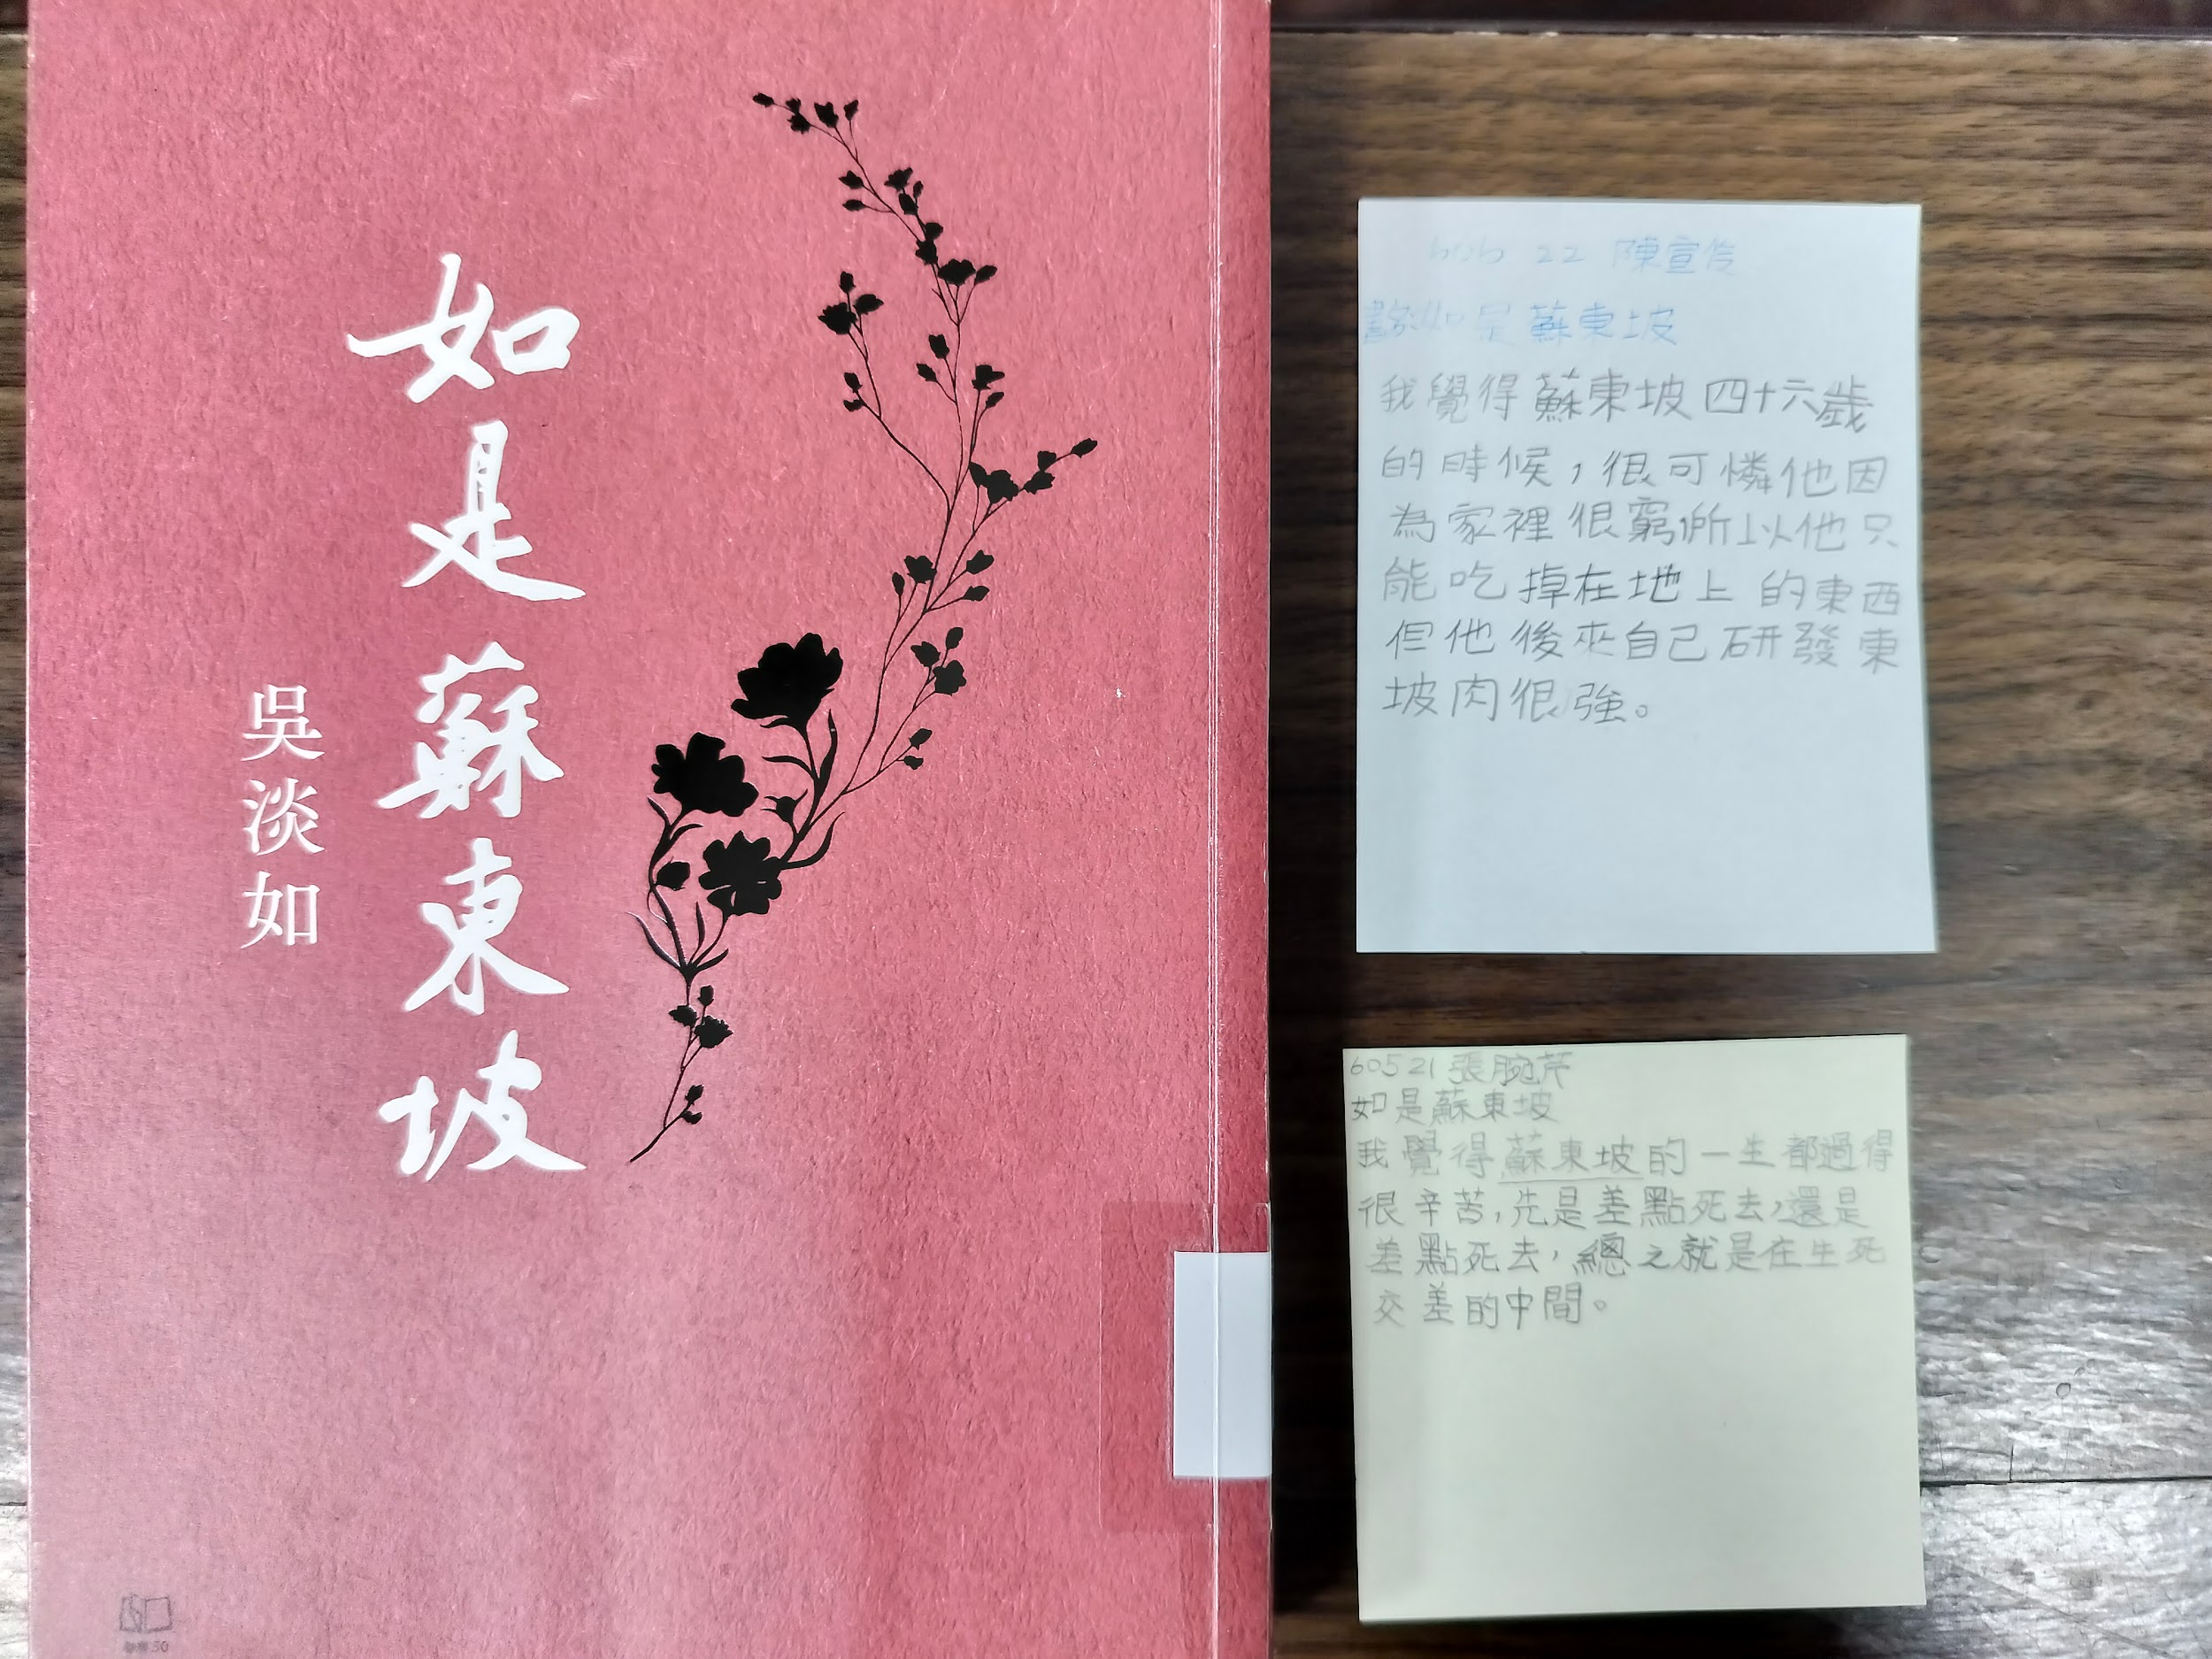 如是蘇東坡
吳淡如
22 陳宣
如是蘇東坡
我覺得蘇東坡四十六歲
的時候，很可憐他因
為家裡很窮所以他只
能吃掉在地上的東西
但他後來自己研發東
坡肉很強。
60521 張腕芹
如是蘇東坡
我覺得蘇東坡的一生都過得
很辛苦，先是差點死去，還是
差點死去，總之就是在生死
交差的中間。
50